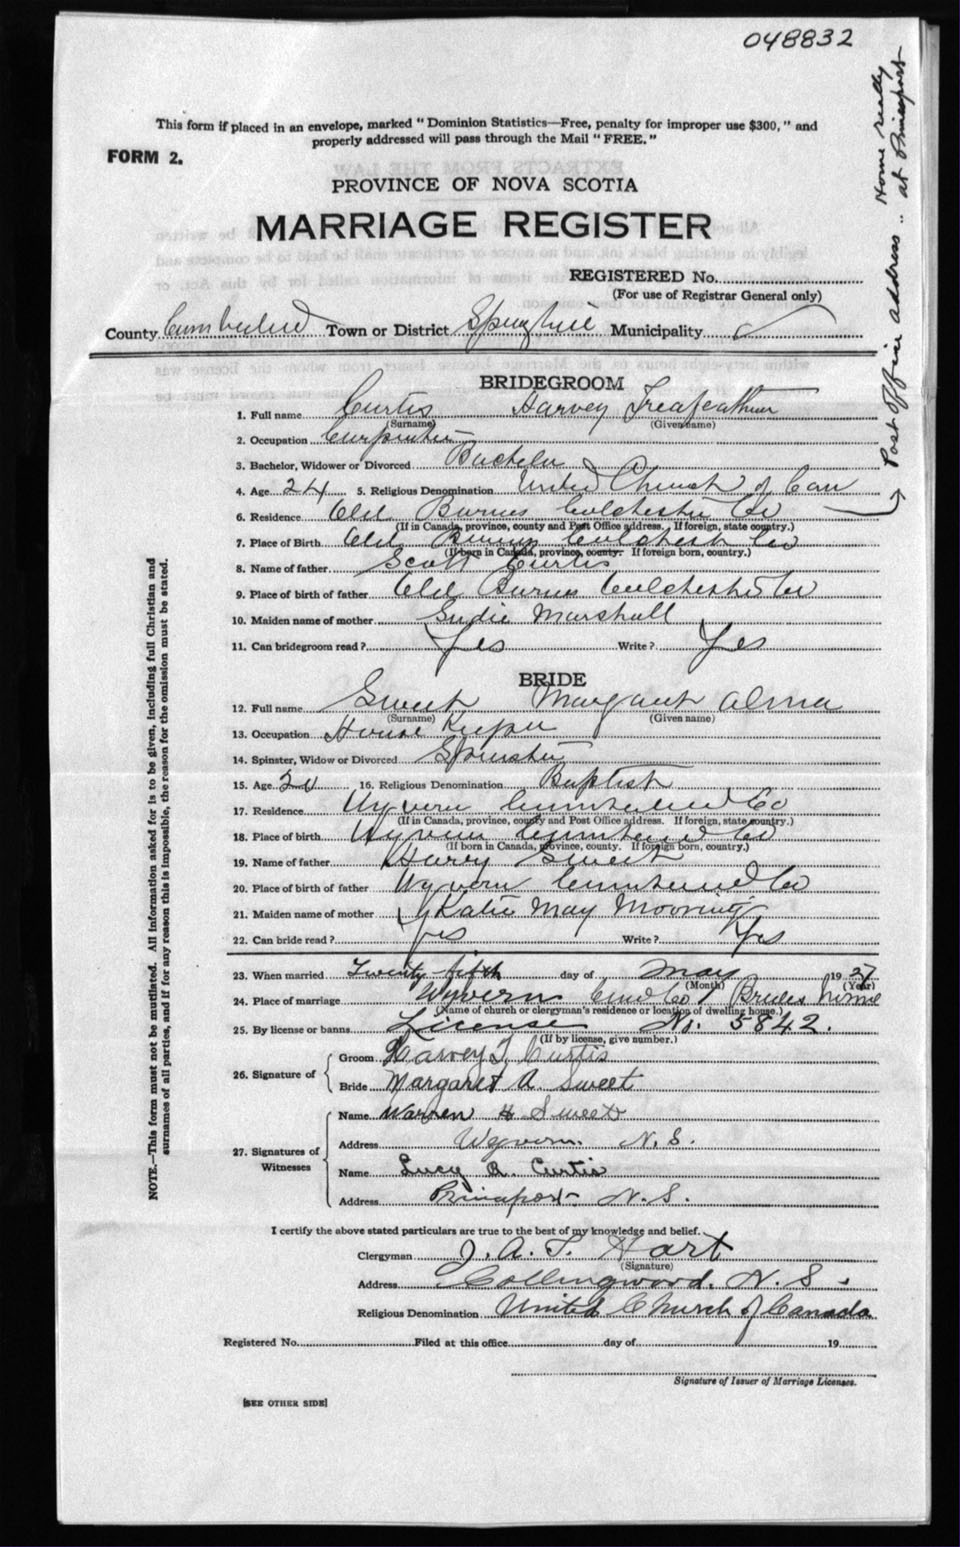 048832
This form if placed in an envelope, marked "Dominion Statistics—Free, penalty for improper use $300," and
properly addressed will pass through the Mail "FREE."
FORM 2.
PROVINCE OF NOVA SCOTIA
MARRIAGE REGISTER
REGISTERED No.
(For use of Registrar General only)
County Cumberland Town or District Springhill Municipality
BRIDEGROOM
1. Full name Curtis Harvey
(Surname) (Given name)
2. Occupation Carpenter
3. Bachelor, Widower or Divorced Bachelor
4. Age 24 5. Religious Denomination United Church of Can
6. Residence Old Barns Colchester Co
(If in Canada, province, county and Post Office address. If foreign, state country.)
7. Place of Birth Old Barns Colchester Co
(If born in Canada, province, county. If foreign born, country.)
8. Name of father Scott Curtis
9. Place of birth of father Old Barns Colchester Co
10. Maiden name of mother Marshall
11. Can bridegroom read? Yes Write? Yes
BRIDE
12. Full name Sweet Margaret Alma
(Surname) (Given name)
13. Occupation House Keeper
14. Spinster, Widow or Divorced Spinster
15. Age 20 16. Religious Denomination Baptist
17. Residence Wyvern Cumberland Co
(If in Canada, province, county and Post Office address. If foreign, state country.)
18. Place of birth Wyvern Cumberland Co
(If born in Canada, province, county. If foreign born, country.)
19. Name of father Harry Sweet
20. Place of birth of father Wyvern Cumberland Co
21. Maiden name of mother Katie May
22. Can bride read? Yes Write? Yes
23. When married Twenty-fifth day of May 19
(Month) (Year)
24. Place of marriage Wyvern Cumb Co Brides home
(Name of church or clergyman's residence or location of dwelling house.)
25. By license or banns License No. 5842.
(If by license, give number.)
26. Signature of
Groom Harvey T. Curtis
Bride Margaret A. Sweet
27. Signatures of Witnesses
Name Warren H Sweet
Address Wyvern. N.S.
Name Lucy R. Curtis
Address Princeport N.S.
I certify the above stated particulars are true to the best of my knowledge and belief.
Clergyman J. A. T. Hart
(Signature)
Address Collingwood. N.S.
Religious Denomination United Church of Canada
Registered No. Filed at this office day of 19
Signature of Issuer of Marriage Licenses.
[SEE OTHER SIDE]
NOTE.—This form must not be mutilated. All information asked for is to be given, including full Christian and
surnames of all parties, and if for any reason this is impossible, the reason for the omission must be stated.
Post Office address .. Home really
at Princeport